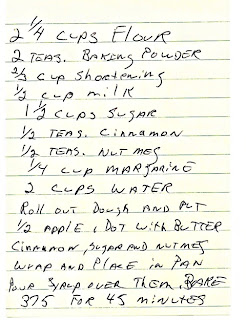 2 1/4 CUPS FLOUR
2 TEAS. BAKING POWDER
2/3 CUP Shortening
1/2 CUP MILK
1 1/2 CUPS SUGAR
1/2 TEAS. CINNAMON
1/2 TEAS. NUTMEG
1/4 CUP MARGARINE
2 CUPS WATER
Roll OUT DOUGH AND PUT
1/2 APPLE, DOT WITH BUTTER
CINNAMON, SUGAR AND NUTMEG
WRAP AND PLACE IN PAN
POUR SYRUP OVER THEM, BAKE
375 FOR 45 MINUTES